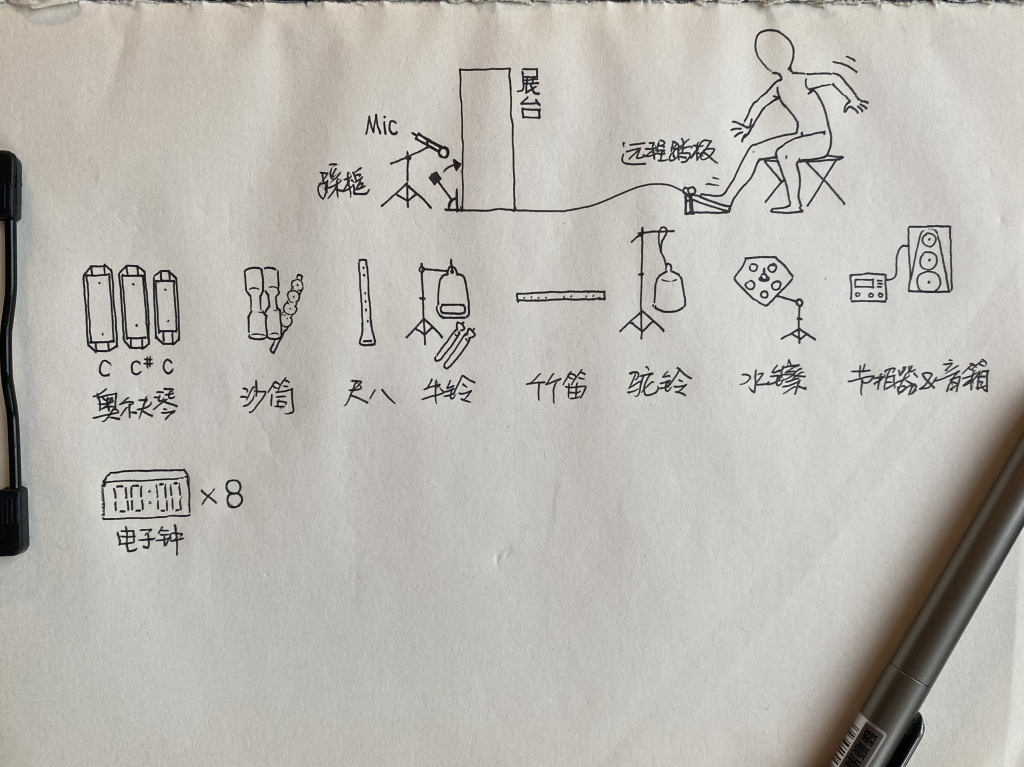 展台
Mic
远程踏板
踩框
C C# C
奥尔夫琴
沙筒
尺八
牛铃
竹笛
驼铃
水镲
节拍器&音箱
00:00 ×8
电子钟